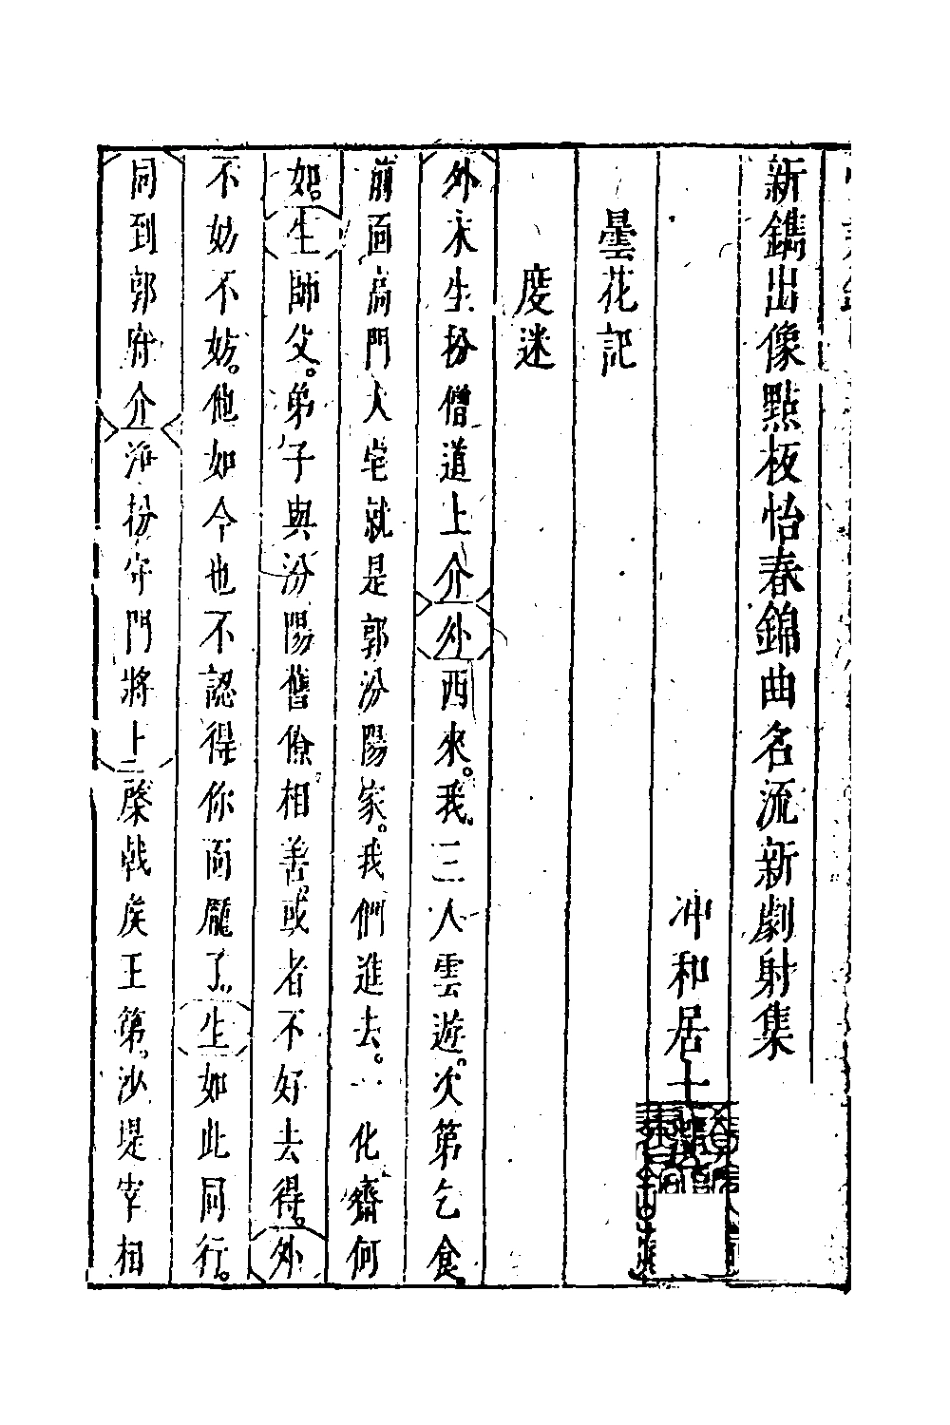 新鐫出像點板怡春錦曲名流新劇射集
冲和居士
曇花記
度迷
外末生扮僧道上介外西來我三人雲遊次第乞食
前面高門大宅就是郭汾陽家我們進去一化齋何
如生師父弟子與汾陽舊僚相善或者不好去得外
不妨不妨他如今也不認得你面龐了生如此同行
同到郭府介淨扮守門將上棨戟侯王第沙堤宰相